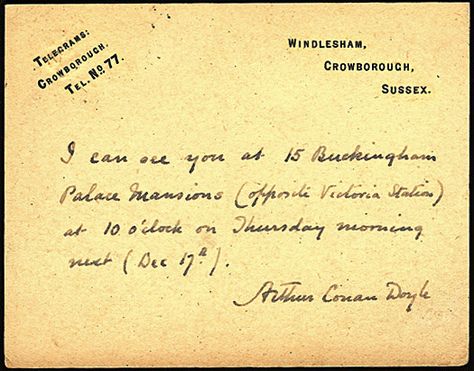 TELEGRAMS:
CROWBOROUGH.
TEL. No 77.
WINDLESHAM,
CROWBOROUGH,
SUSSEX.
I can see you at 15 Buckingham
Palace Mansions (opposite Victoria Station)
at 10 o'clock on Thursday morning
next (Dec 17th).
Arthur Conan Doyle